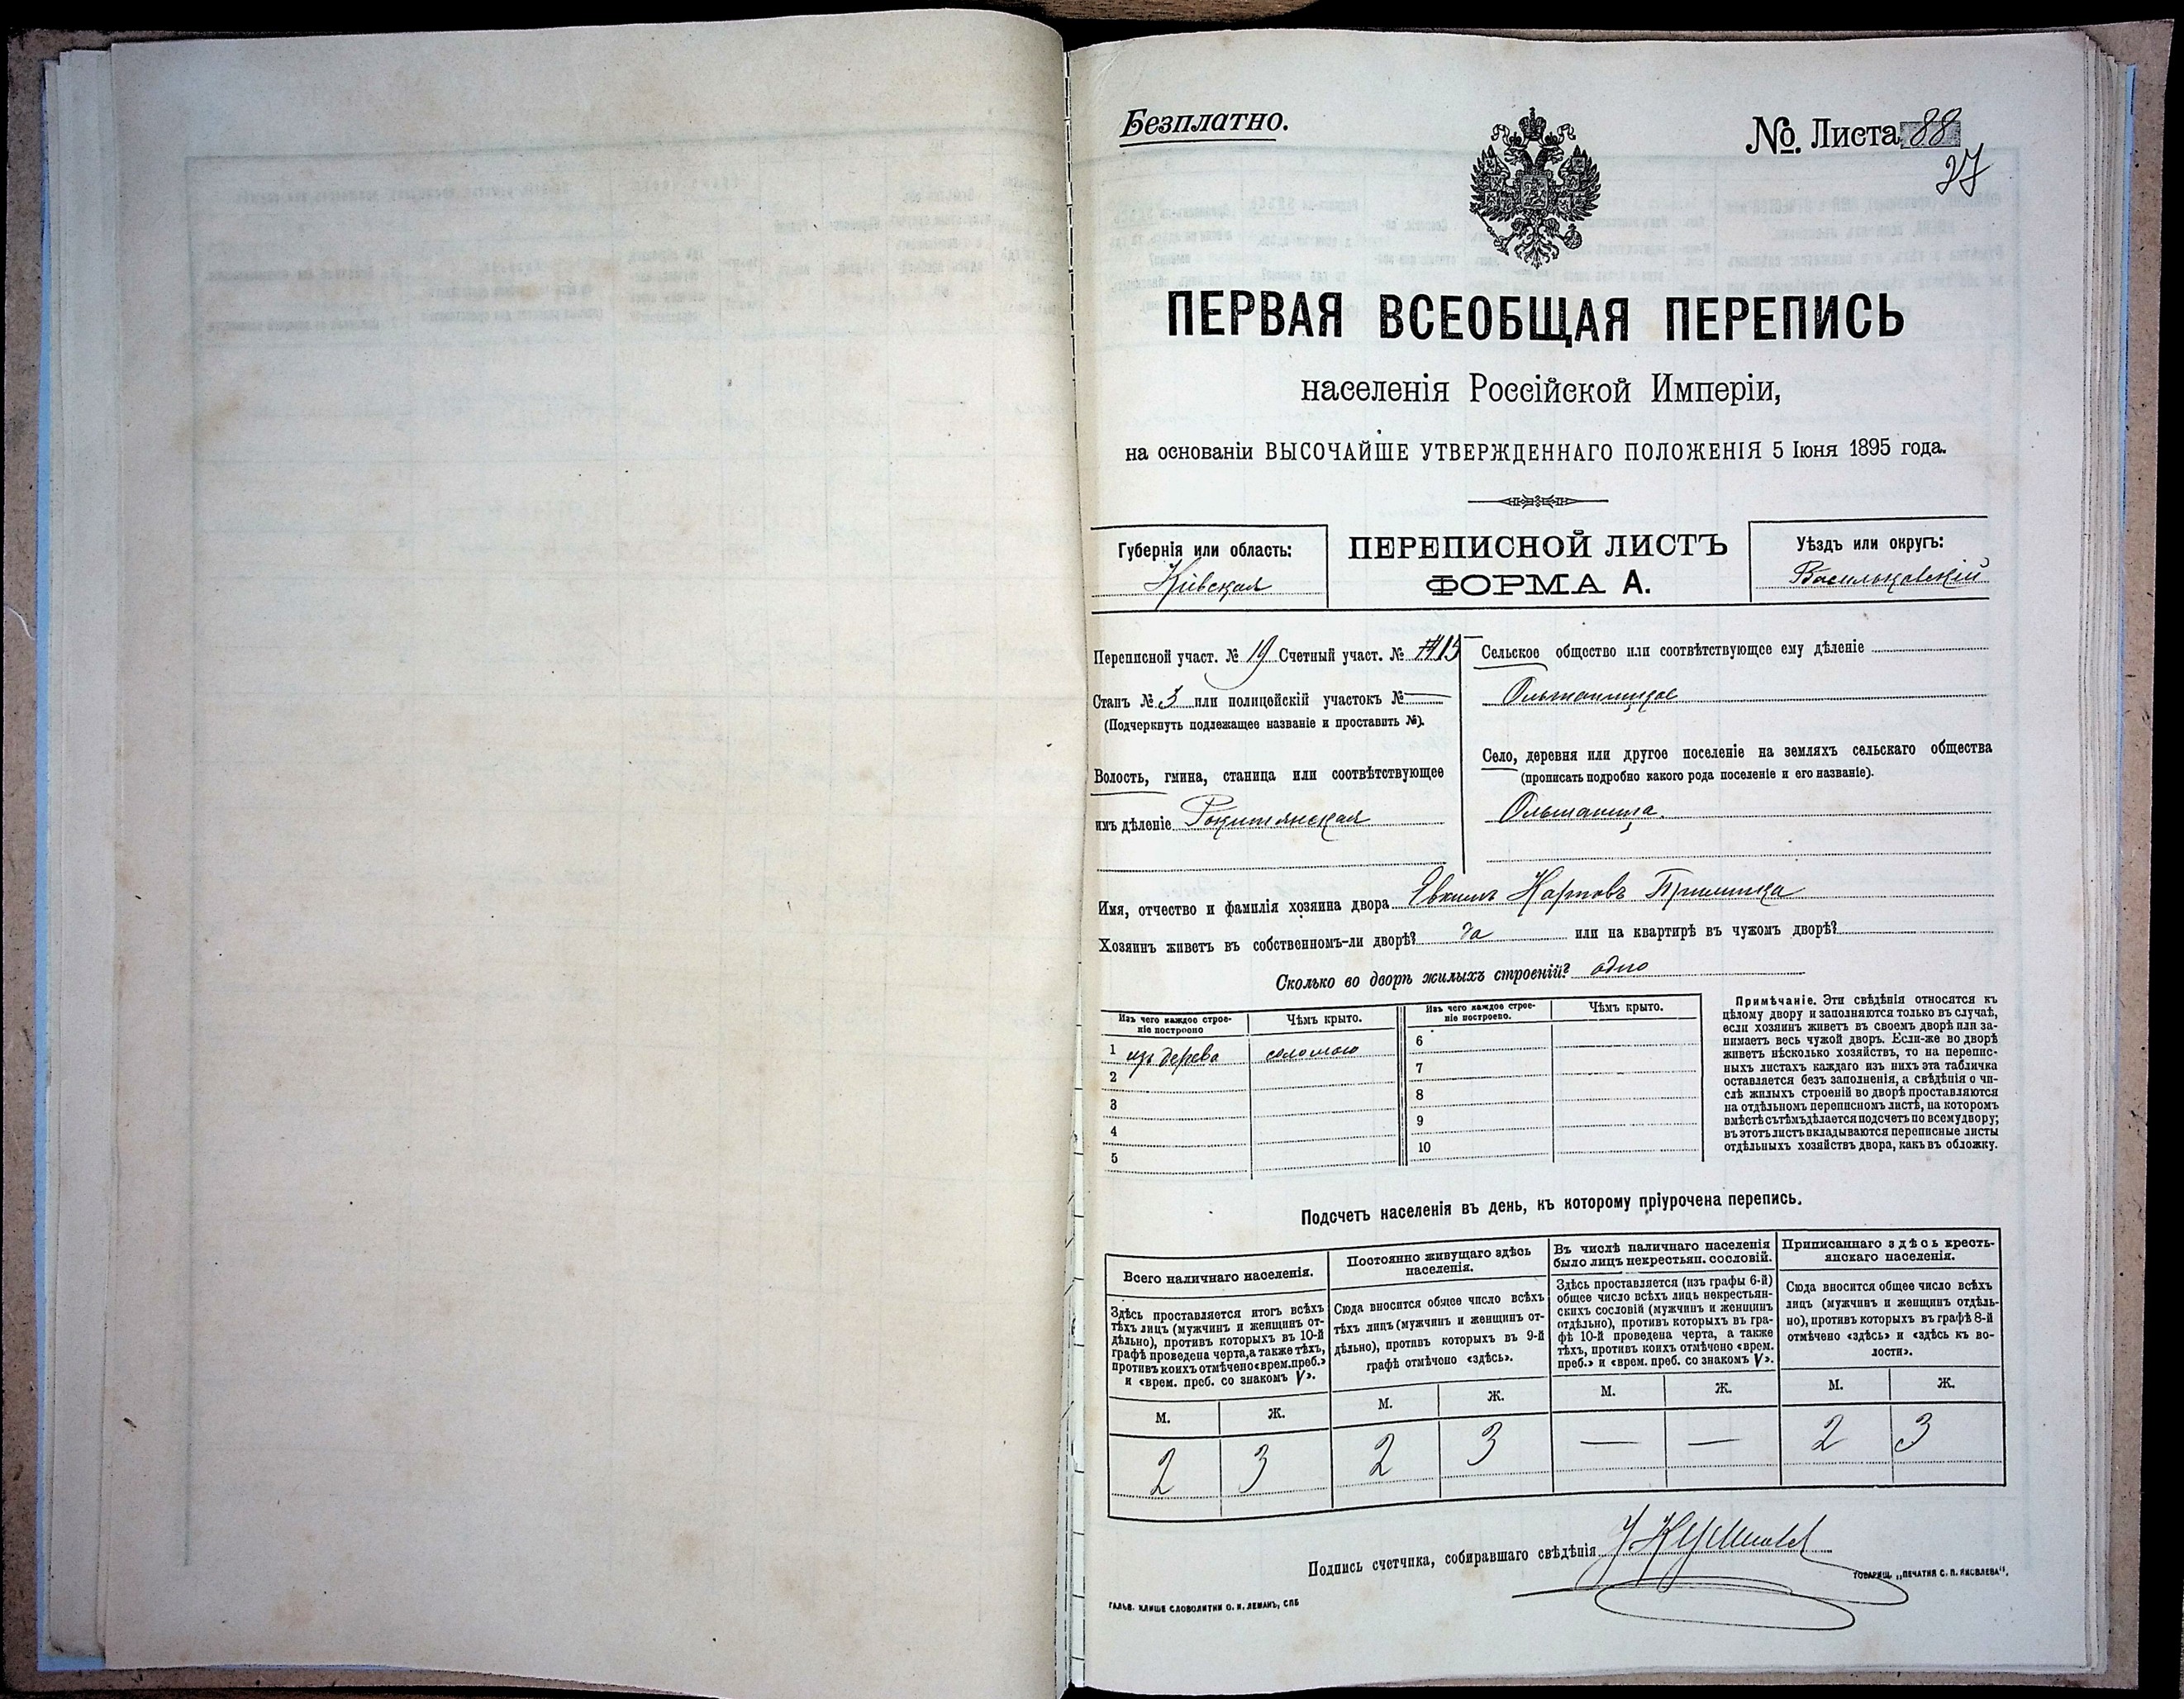 Безплатно.
№. Листа 88
27
ПЕРВАЯ ВСЕОБЩАЯ ПЕРЕПИСЬ
населенія Россійской Имперіи,
на основаніи ВЫСОЧАЙШЕ УТВЕРЖДЕННАГО ПОЛОЖЕНІЯ 5 Іюня 1895 года.
Губернія или область:
Кіевская
ПЕРЕПИСНОЙ ЛИСТЪ
ФОРМА А.
Уѣздъ или округъ:
Васильковскій
Переписной участ. № 19 Счетный участ. № 15
Станъ № 3 или полицейскій участокъ № —
(Подчеркнуть подлежащее названіе и проставить №).
Волость, гмина, станица или соотвѣтствующее
имъ дѣленіе Рокитянская
Сельское общество или соотвѣтствующее ему дѣленіе
Ольшаницкое
Село, деревня или другое поселеніе на земляхъ сельскаго общества
(прописать подробно какого рода поселеніе и его названіе).
Ольшаница.
Имя, отчество и фамилія хозяина двора Карповъ
Хозяинъ живетъ въ собственномъ-ли дворѣ? да или на квартирѣ въ чужомъ дворѣ?
Сколько во дворѣ жилыхъ строеній? одно
Изъ чего каждое строе-
ніе построено
Чѣмъ крыто.
1 изъ дерева соломою
2
3
4
5
Изъ чего каждое строе-
ніе построено.
Чѣмъ крыто.
6
7
8
9
10
Примѣчаніе. Эти свѣдѣнія относятся къ
цѣлому двору и заполняются только въ случаѣ,
если хозяинъ живетъ въ своемъ дворѣ или за-
нимаетъ весь чужой дворъ. Если-же во дворѣ
живетъ нѣсколько хозяйствъ, то на перепис-
ныхъ листахъ каждаго изъ нихъ эта табличка
оставляется безъ заполненія, а свѣдѣнія о чи-
слѣ жилыхъ строеній во дворѣ проставляются
на отдѣльномъ переписномъ листѣ, на которомъ
вмѣстѣ съ тѣмъ дѣлается подсчетъ по всему двору;
въ этотъ листъ вкладываются переписные листы
отдѣльныхъ хозяйствъ двора, какъ въ обложку.
Подсчетъ населенія въ день, къ которому пріурочена перепись.
Всего наличнаго населенія.
Здѣсь проставляется итогъ всѣхъ
тѣхъ лицъ (мужчинъ и женщинъ от-
дѣльно), противъ которыхъ въ 10-й
графѣ проведена черта, а также тѣхъ,
противъ коихъ отмѣчено «врем. преб.»
и «врем. преб. со знакомъ V».
М. Ж.
2 3
Постоянно живущаго здѣсь
населенія.
Сюда вносится общее число всѣхъ
тѣхъ лицъ (мужчинъ и женщинъ от-
дѣльно), противъ которыхъ въ 9-й
графѣ отмѣчено «здѣсь».
М. Ж.
2 3
Въ числѣ наличнаго населенія
было лицъ некрестьян. сословій.
Здѣсь проставляется (изъ графы 6-й)
общее число всѣхъ лицъ некрестьян-
скихъ сословій (мужчинъ и женщинъ
отдѣльно), противъ которыхъ въ гра-
фѣ 10-й проведена черта, а также
тѣхъ, противъ коихъ отмѣчено «врем.
преб.» и «врем. преб. со знакомъ V».
М. Ж.
— —
Приписаннаго здѣсь кресть-
янскаго населенія.
Сюда вносится общее число всѣхъ
лицъ (мужчинъ и женщинъ отдѣль-
но), противъ которыхъ въ графѣ 8-й
отмѣчено «здѣсь» и «здѣсь къ во-
лости».
М. Ж.
2 3
Подпись счетчика, собиравшаго свѣдѣнія
ГАЛЬВ. КЛИШЕ СЛОВОЛИТНИ О. И. ЛЕМАНЪ, СПБ
ТОВАРИЩ. „ПЕЧАТНЯ С. П. ЯКОВЛЕВА".